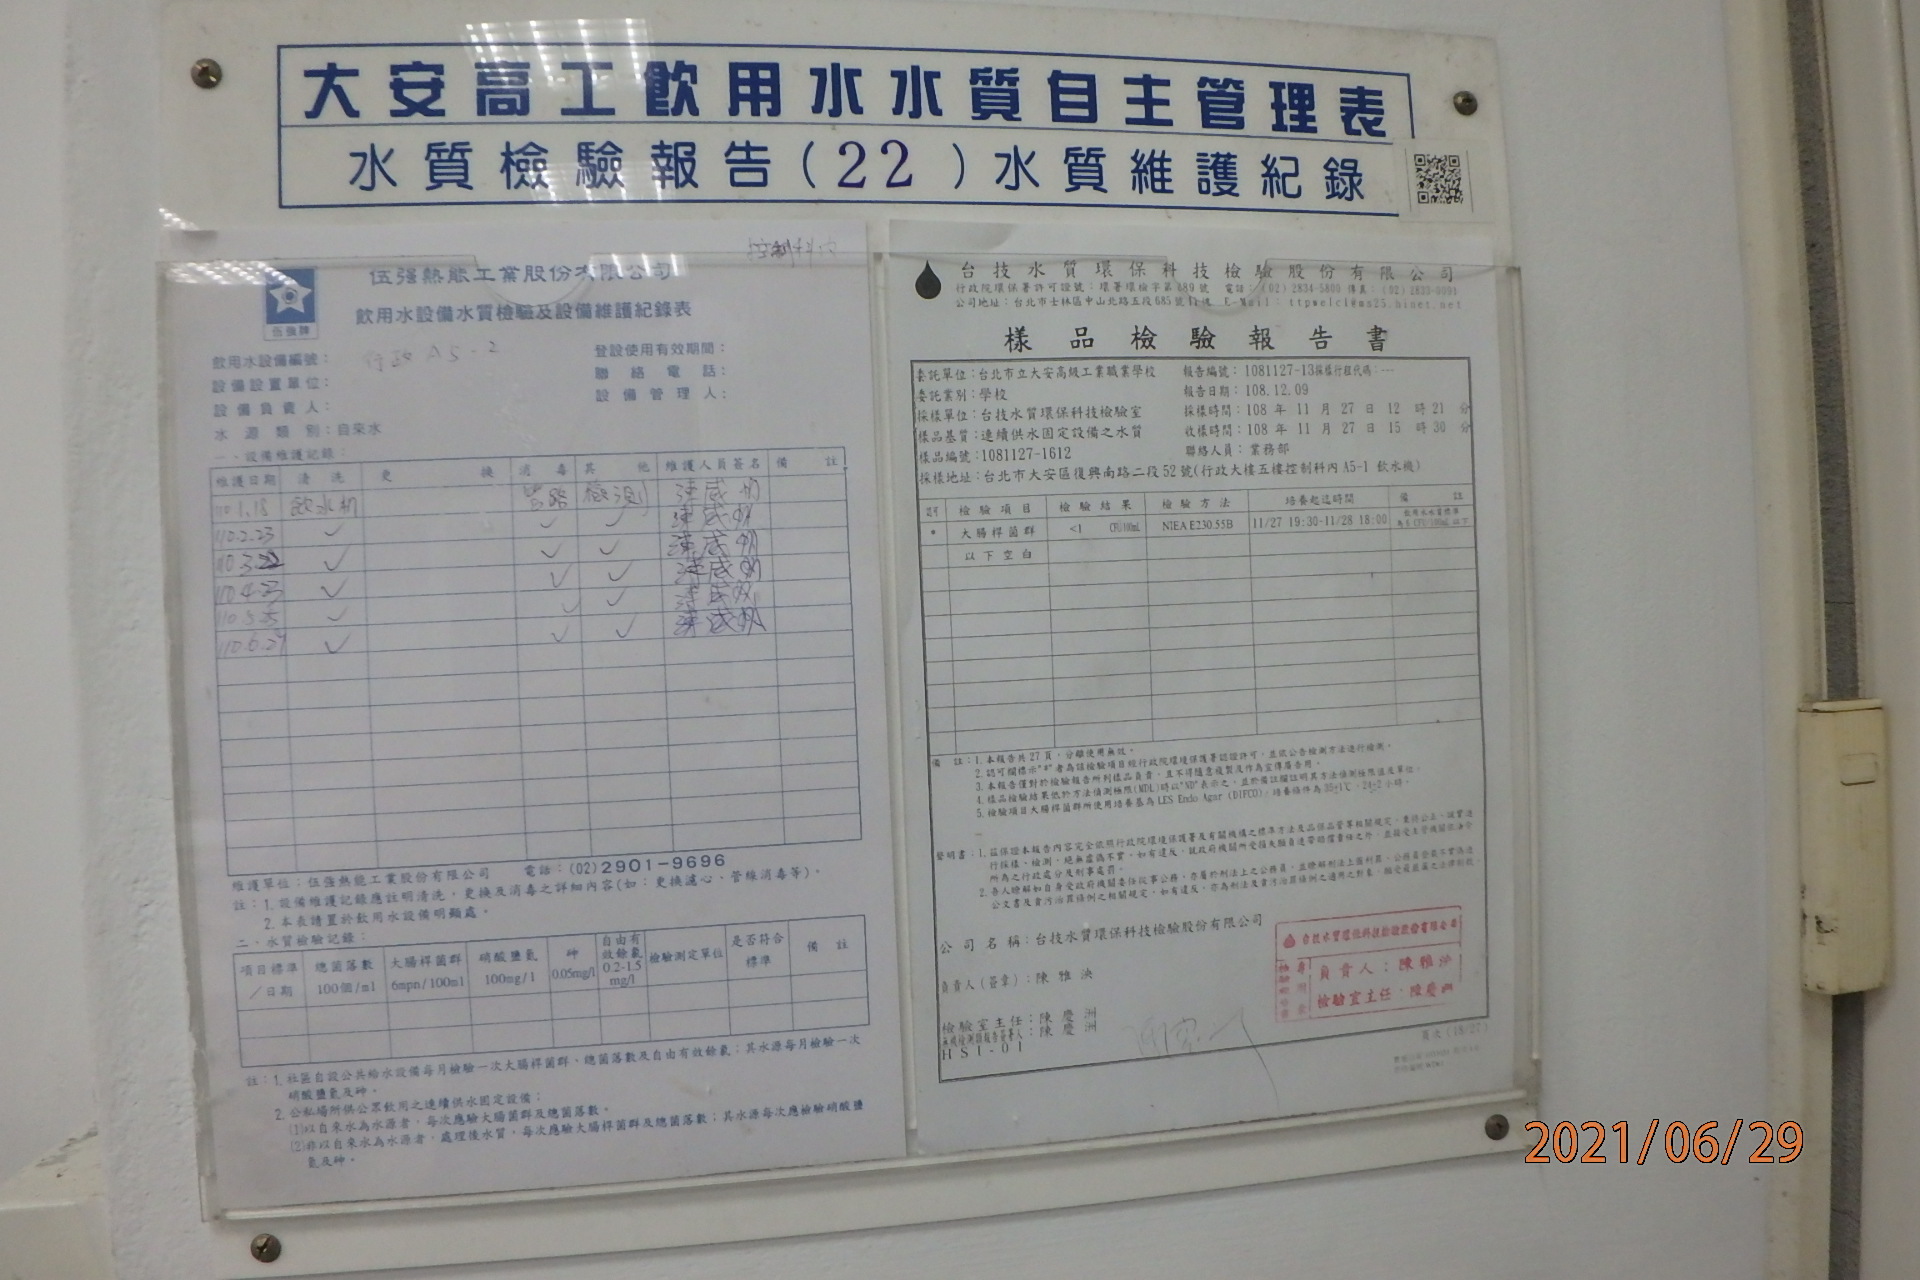 大安高工飲用水水質自主管理表
水質檢驗報告(22)水質維護紀錄
控制科內
伍强熱能工業股份有限公司
飲用水設備水質檢驗及設備維護紀錄表
伍強牌
飲用水設備編號： 行政A5-2
設備設置單位：
設備負責人：
水源類別：自來水
登設使用有效期間：
聯絡電話：
設備管理人：
一、設備維護記錄：
維護日期 清洗 更換 消毒 其他 維護人員簽名 備註
110.1.18 飲水机 管路 檢測
110.2.23 ✓ ✓ ✓
110.3.22 ✓ ✓ ✓
110.4.23 ✓ ✓ ✓
110.5.25 ✓ ✓ ✓
110.6.29 ✓ ✓ ✓
維護單位：伍强熱能工業股份有限公司 電話：(02)2901-9696
註：1. 設備維護記錄應註明清洗、更換及消毒之詳細內容(如：更換濾心、管線消毒等)。
2. 本表請置於飲用水設備明顯處。
二、水質檢驗記錄：
項目標準／日期 總菌落數 100個/ml 大腸桿菌群 6mpn/100ml 硝酸鹽氮 100mg/l 砷 0.05mg/l 自由有效餘氯 0.2-1.5 mg/l 檢驗測定單位 是否符合標準 備註
註：1. 社區自設公共給水設備每月檢驗一次大腸桿菌群、總菌落數及自由有效餘氯；其水源每月檢驗一次
硝酸鹽氮及砷。
2. 公私場所供公眾飲用之連續供水固定設備：
(1)以自來水為水源者，每次應驗大腸菌群及總菌落數。
(2)非以自來水為水源者，處理後水質，每次應驗大腸桿菌群及總菌落數；其水源每次應檢驗硝酸鹽
氮及砷。
台技水質環保科技檢驗股份有限公司
行政院環保署許可證號：環署環檢字第089號 電話：(02) 2834-5800 傳真：(02) 2833-9091
公司地址：台北市士林區中山北路五段685號11樓 E-Mail：ttpwelcl@ms25.hinet.net
樣品檢驗報告書
委託單位：台北市立大安高級工業職業學校 報告編號：1081127-13採樣行程代碼：---
委託業別：學校 報告日期：108.12.09
採樣單位：台技水質環保科技檢驗室 採樣時間：108 年 11 月 27 日 12 時 21 分
樣品基質：連續供水固定設備之水質 收樣時間：108 年 11 月 27 日 15 時 30 分
樣品編號：1081127-1612 聯絡人員：業務部
採樣地址：台北市大安區復興南路二段52號(行政大樓五樓控制科內 A5-1 飲水機)
認可 檢驗項目 檢驗結果 檢驗方法 培養起迄時間 備註
* 大腸桿菌群 <1 CFU/100mL NIEA E230.55B 11/27 19:30-11/28 18:00 飲用水水質標準為6 CFU/100mL以下
以下空白
備註：1. 本報告共27頁，分離使用無效。
2. 認可欄標示"*"者為該檢驗項目經行政院環境保護署認證許可，並依公告檢測方法進行檢測。
3. 本報告僅對於檢驗報告所列樣品負責，且不得隨意複製及作為宣傳廣告用。
4. 樣品檢驗結果低於方法偵測極限(MDL)時以"ND"表示之，並於備註欄註明其方法偵測極限值及單位。
5. 檢驗項目大腸桿菌群所使用培養基為 LES Endo Agar (DIFCO)，培養條件為 35±1℃，24±2 小時。
公司名稱：台技水質環保科技檢驗股份有限公司
負責人(簽章)：陳雅泱
檢驗室主任：陳慶洲
HSI-01
台技水質環保科技檢驗股份有限公司
負責人：陳雅泱
檢驗室主任：陳慶洲
頁次 (18/27)
2021/06/29